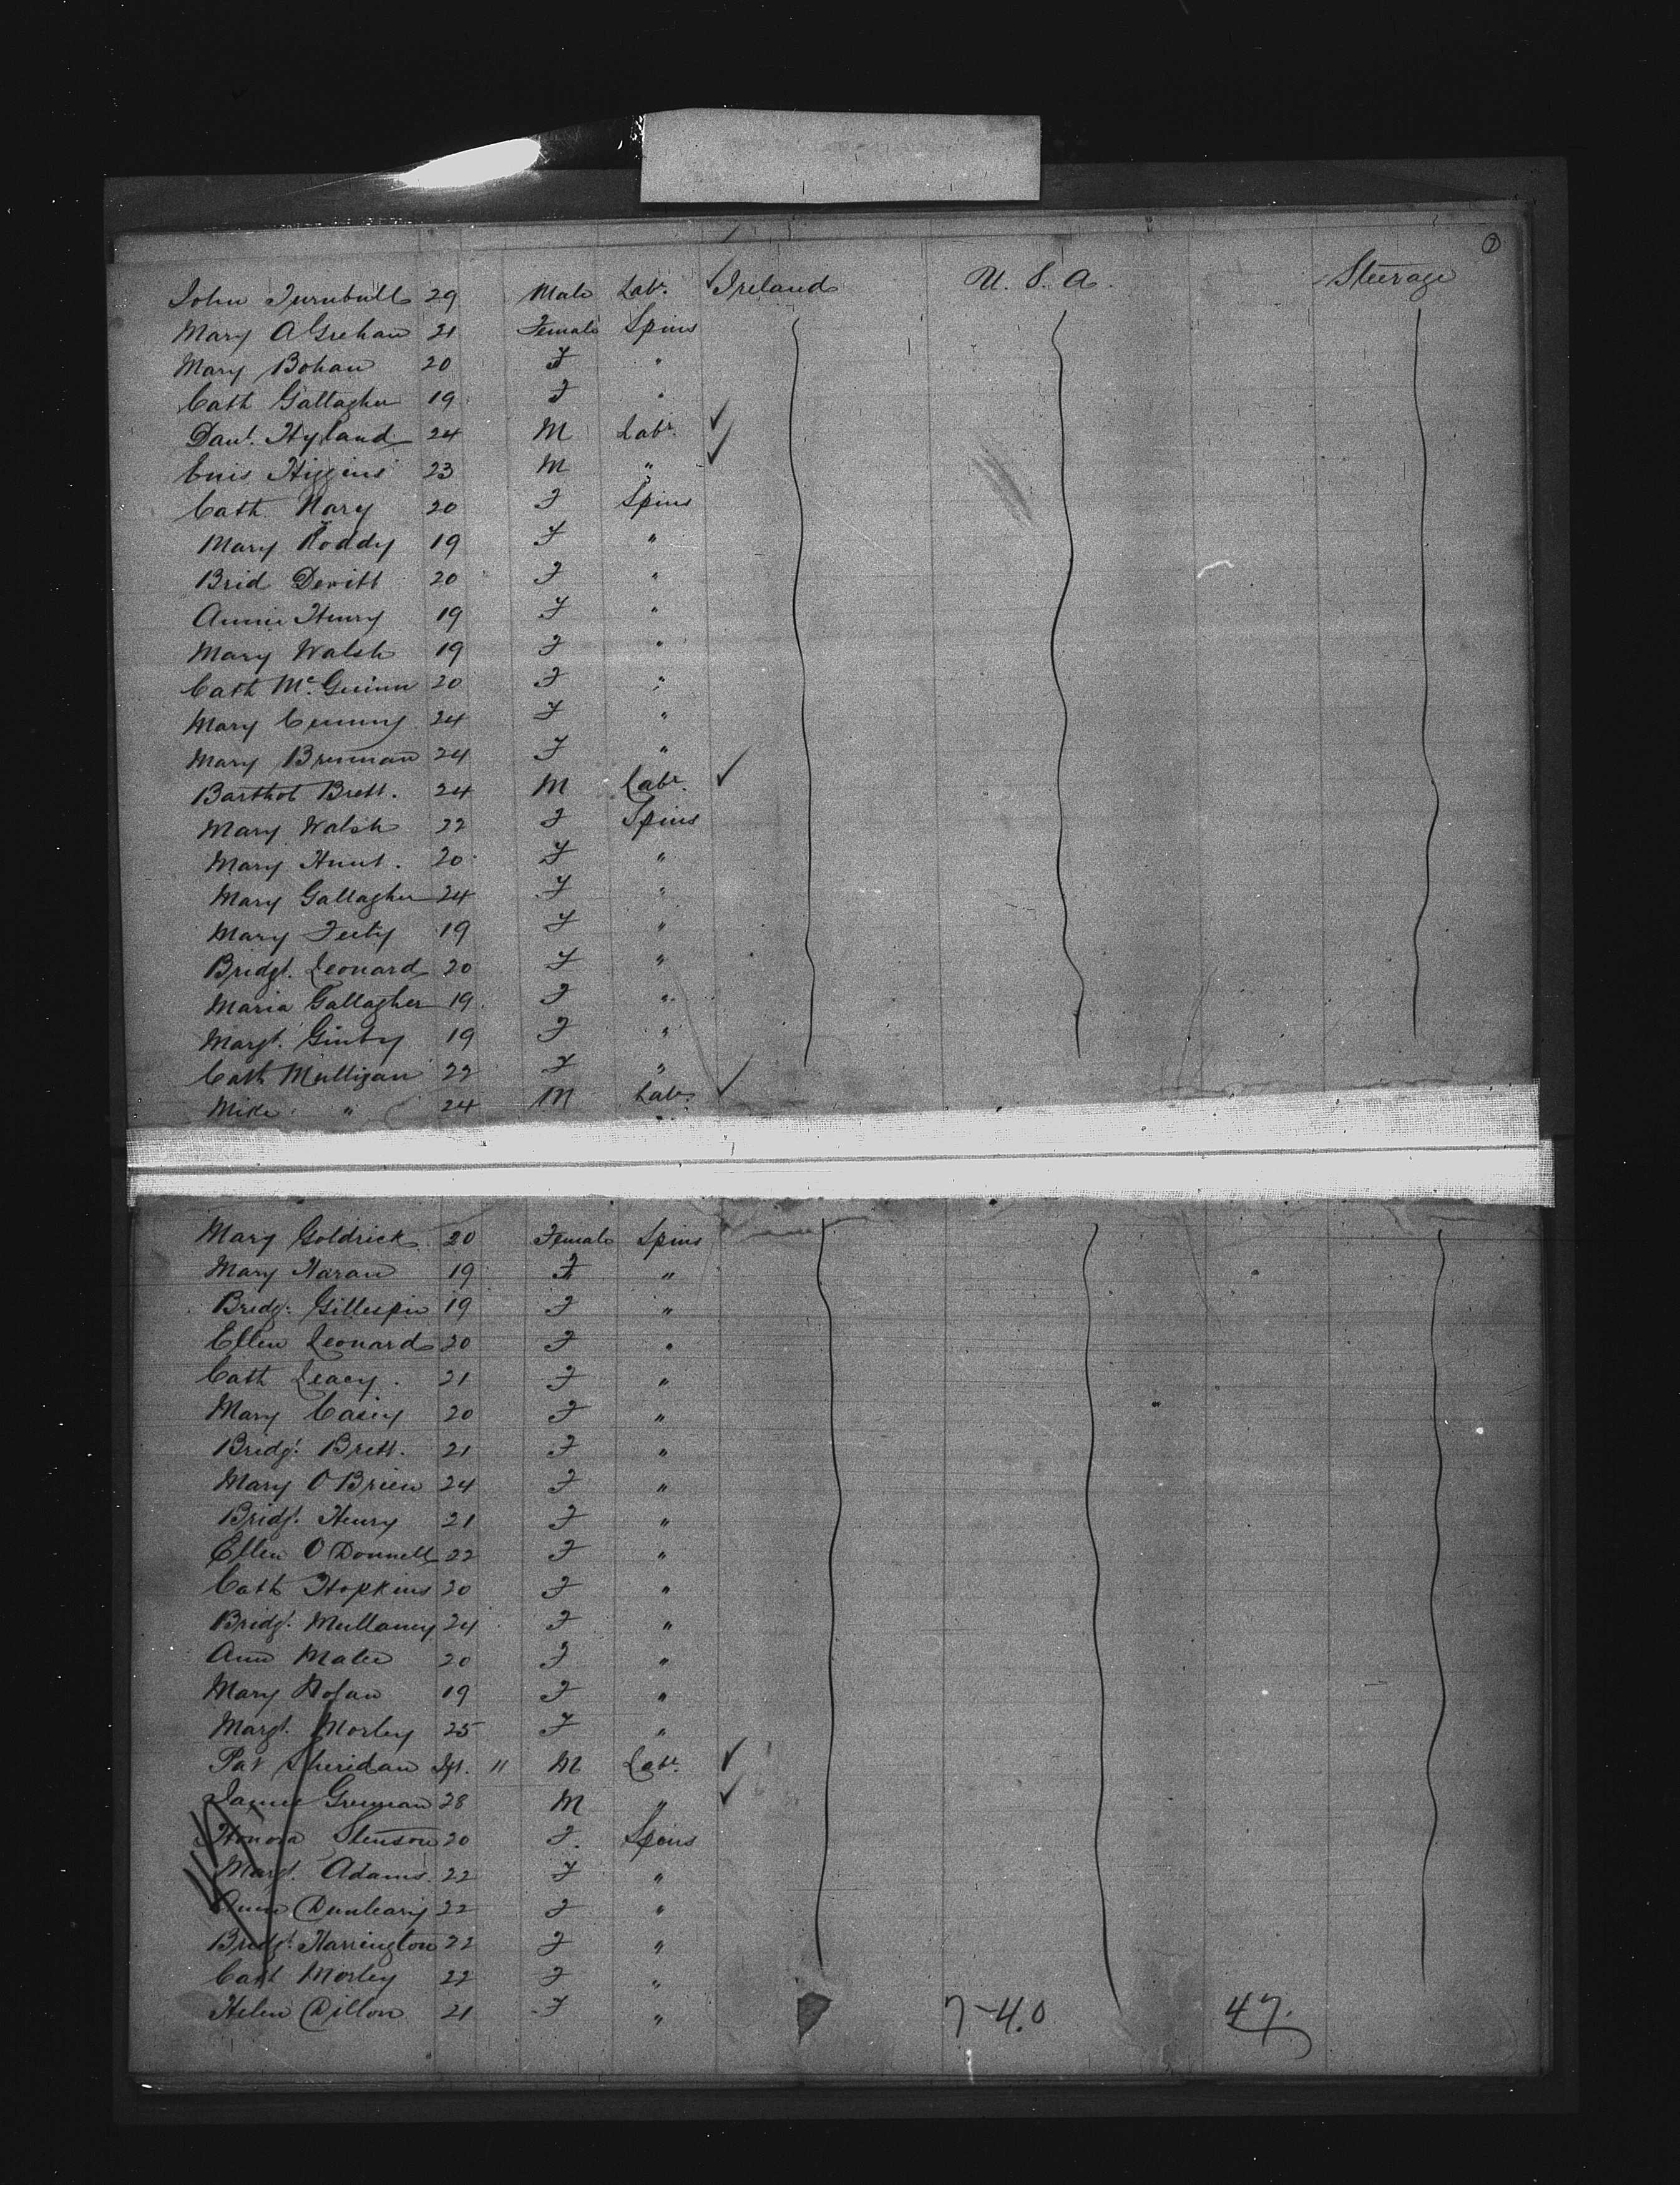 John Turnbull 29 Male Labr. Ireland U. S. A. Steerage
Mary A Grehan 21 Female Spins
Mary Bohan 20 F "
Cath Gallagher 19 F "
Danl. Hyland 24 M Labr.
Higgins 23 M "
Cath Nary 20 F Spins
Mary Roddy 19 F "
Brid Devitt 20 F "
Annie Henry 19 F "
Mary Walsh 19 F "
Cath Mc. Guinn 20 F "
Mary 24 F "
Mary Brennan 24 F "
Barthol Brett. 24 M Labr.
Mary Walsh 22 F Spins
Mary Hunt. 20 F "
Mary Gallagher 24 F "
Mary Feety 19 F "
Bridgt. Leonard 20 F "
Maria Gallagher 19 F "
Margt. Ginty 19 F "
Cath Mulligan 22 F "
Mike " 24 M Labr.
Mary Goldrick 20 Female Spins
Mary Naran 19 F "
Bridgt. Gillespie 19 F "
Ellen Leonard 20 F "
Cath Leacy. 21 F "
Mary Casey 20 F "
Bridgt. Brett. 21 F "
Mary O Brien 24 F "
Bridgt. Henry 21 F "
Ellen O Donnell 22 F "
Cath Hopkins 20 F "
Bridgt. Mullaney 24 F "
Ann Malee 20 F "
Mary 19 F "
Margt. Morley 25 F "
Pat Sheridan " M Labr.
James Grennan 28 M "
Honora Stenson 20 F. Spins
Margt. Adams. 22 F "
Dunleavy 22 F "
Bridgt. Harrington 22 F "
Cath Morley 22 F "
Helen Dillon 21 F " 7-40 47.